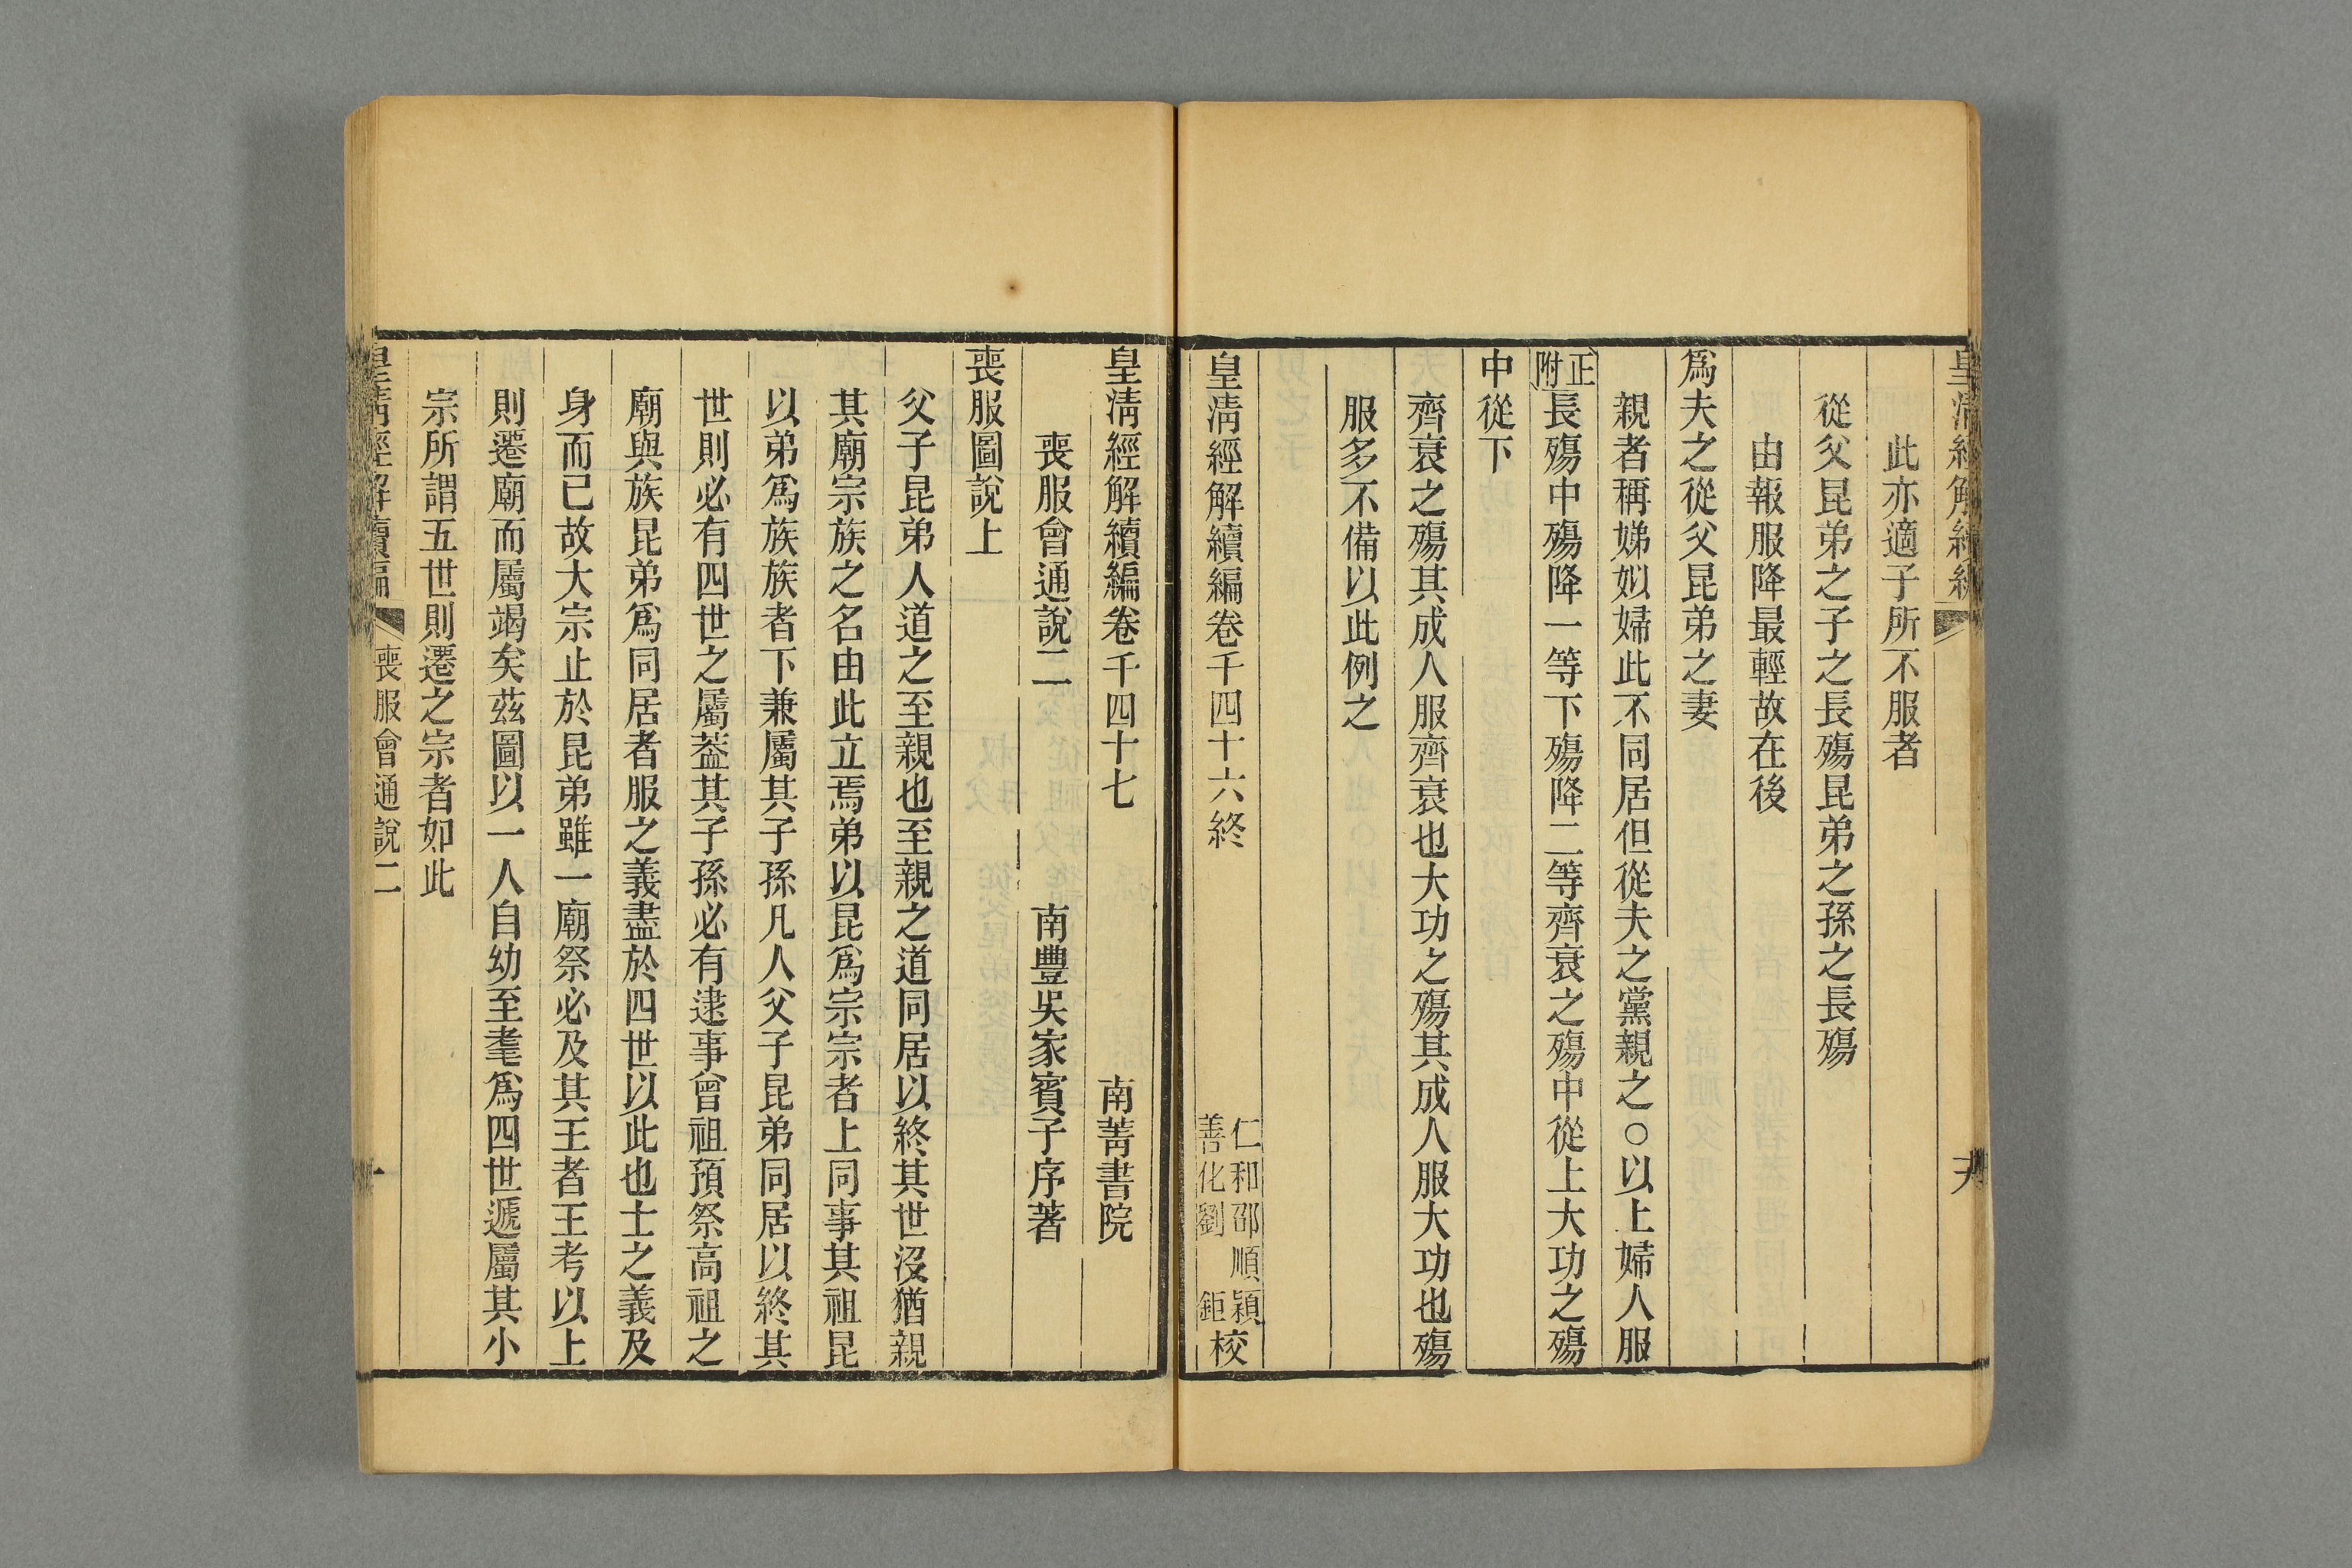 皇清經解續編
此亦適子所不服者
從父昆弟之子之長殤昆弟之孫之長殤
由報服降最輕故在後
爲夫之從父昆弟之妻
親者稱娣姒婦此不同居但從夫之黨親之○以上婦人服
正附長殤中殤降一等下殤降二等齊衰之殤中從上大功之殤
中從下
齊衰之殤其成人服齊衰也大功之殤其成人服大功也殤
服多不備以此例之
皇淸經解續編卷千四十六終
仁和邵順穎
善化劉鉅
校
皇淸經解續編卷千四十七
南菁書院
喪服會通說二
南豐吳家賓子序著
喪服圖說上
父子昆弟人道之至親也至親之道同居以終其世沒猶親
其廟宗族之名由此立焉弟以昆爲宗宗者上同事其祖昆
以弟爲族族者下兼屬其子孫凡人父子昆弟同居以終其
世則必有四世之屬葢其子孫必有逮事曾祖預祭高祖之
廟與族昆弟爲同居者服之義盡於四世以此也士之義及
身而已故大宗止於昆弟雖一廟祭必及其王者王考以上
則遷廟而屬竭矣茲圖以一人自幼至耄爲四世遞屬其小
宗所謂五世則遷之宗者如此
皇淸經解續編
喪服會通說二
一